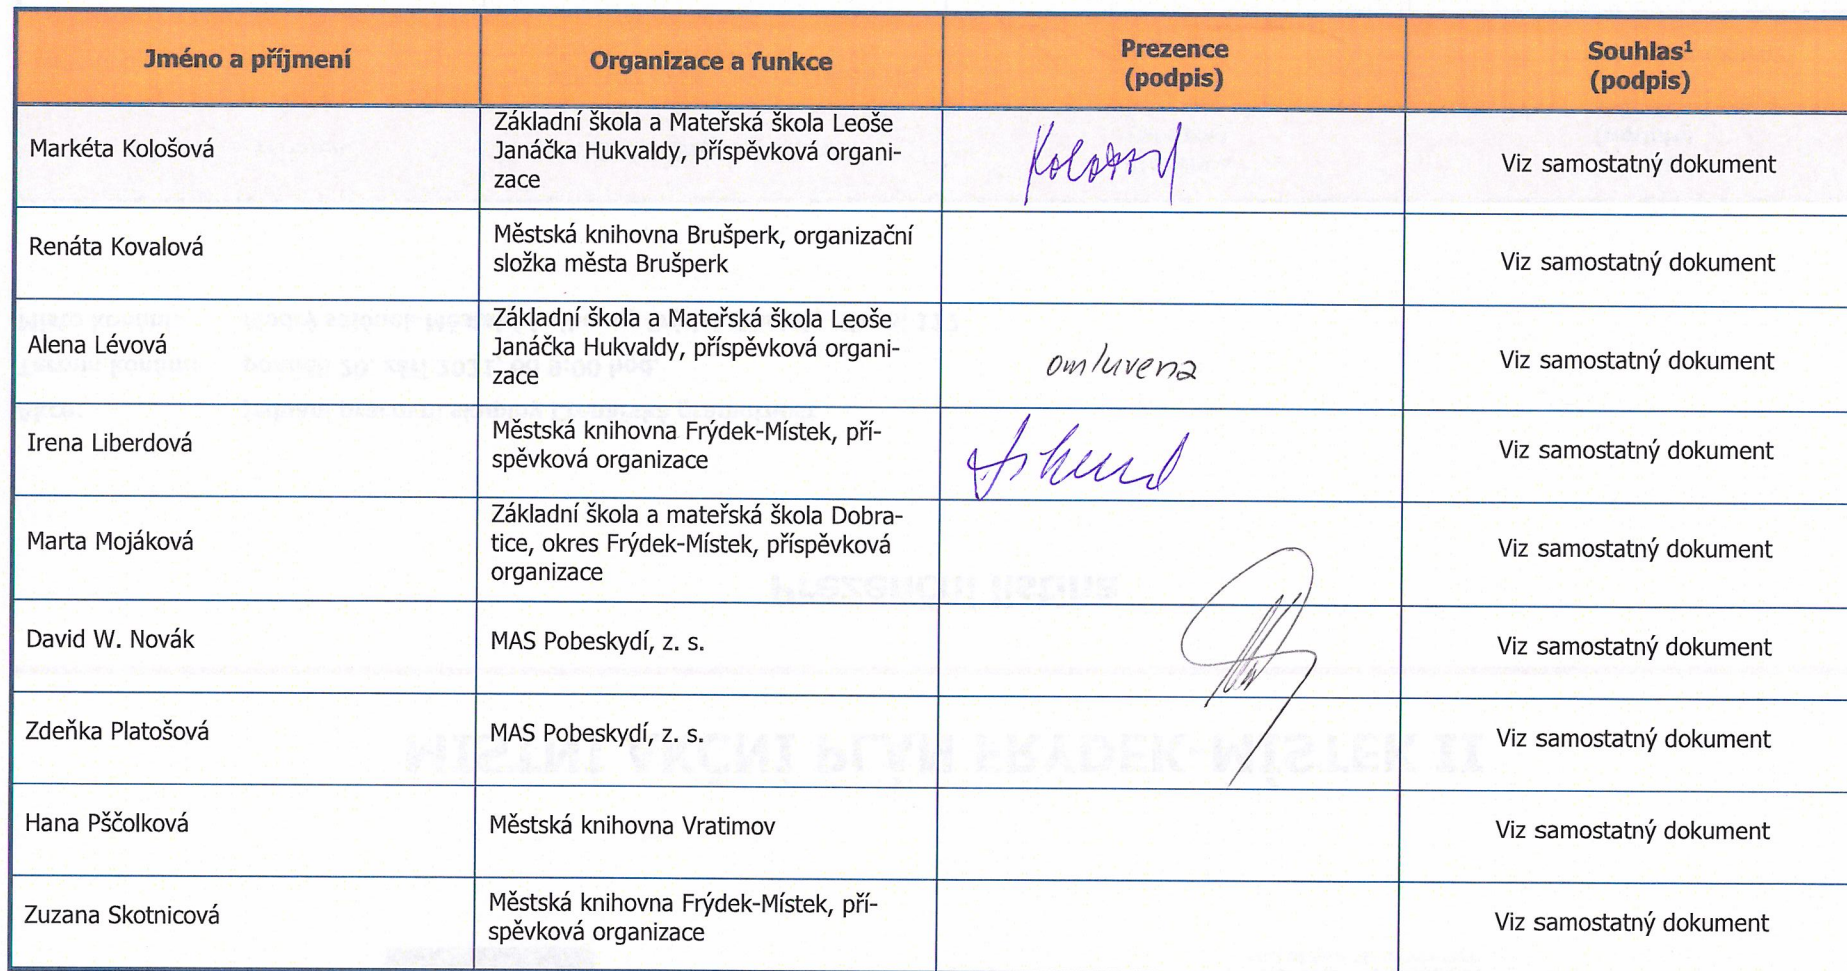 Jméno a příjmení
Organizace a funkce
Prezence
(podpis)
Souhlas¹
(podpis)
Markéta Kološová
Základní škola a Mateřská škola Leoše
Janáčka Hukvaldy, příspěvková organi-
zace
Viz samostatný dokument
Renáta Kovalová
Městská knihovna Brušperk, organizační
složka města Brušperk
Viz samostatný dokument
Alena Lévová
Základní škola a Mateřská škola Leoše
Janáčka Hukvaldy, příspěvková organi-
zace
omluvena
Viz samostatný dokument
Irena Liberdová
Městská knihovna Frýdek-Místek, pří-
spěvková organizace
Viz samostatný dokument
Marta Mojáková
Základní škola a mateřská škola Dobra-
tice, okres Frýdek-Místek, příspěvková
organizace
Viz samostatný dokument
David W. Novák
MAS Pobeskydí, z. s.
Viz samostatný dokument
Zdeňka Platošová
MAS Pobeskydí, z. s.
Viz samostatný dokument
Hana Pščolková
Městská knihovna Vratimov
Viz samostatný dokument
Zuzana Skotnicová
Městská knihovna Frýdek-Místek, pří-
spěvková organizace
Viz samostatný dokument